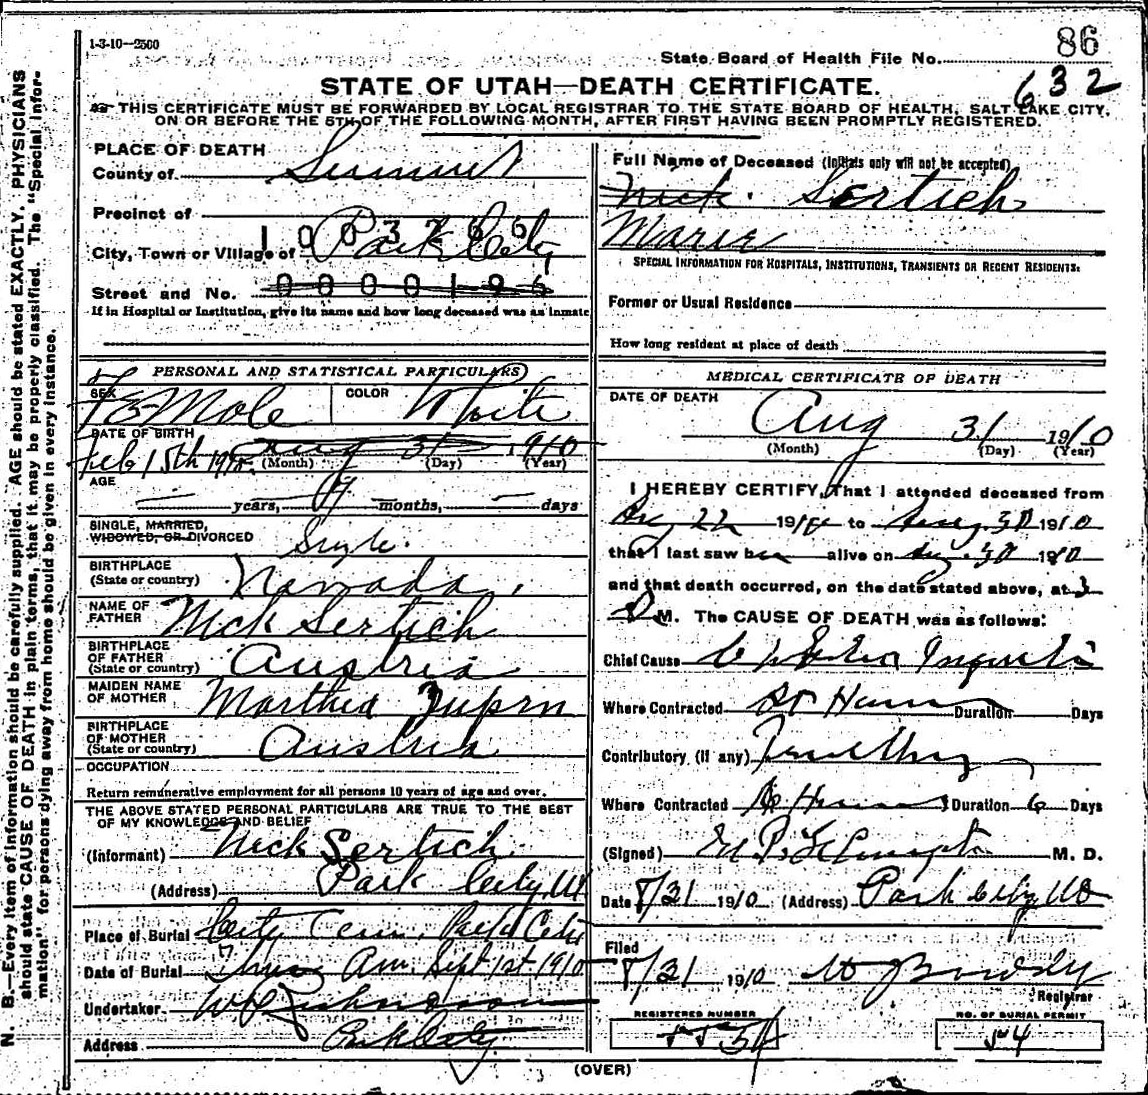 1-3-10—2500
86
State Board of Health File No.
632
STATE OF UTAH—DEATH CERTIFICATE.
THIS CERTIFICATE MUST BE FORWARDED BY LOCAL REGISTRAR TO THE STATE BOARD OF HEALTH, SALT LAKE CITY,
ON OR BEFORE THE 5TH OF THE FOLLOWING MONTH, AFTER FIRST HAVING BEEN PROMPTLY REGISTERED.
PLACE OF DEATH
County of Summit
Precinct of
City, Town or Village of Park City
Street and No.
If in Hospital or Institution, give its name and how long deceased was an inmate
PERSONAL AND STATISTICAL PARTICULARS
SEX Female COLOR White
DATE OF BIRTH
Feb 15th Aug 31 1910
(Month) (Day) (Year)
AGE
years, months, days
SINGLE, MARRIED,
WIDOWED, OR DIVORCED Single.
BIRTHPLACE
(State or country) Nevada,
NAME OF
FATHER Nick Sertich
BIRTHPLACE
OF FATHER
(State or country) Austria
MAIDEN NAME
OF MOTHER Marthea
BIRTHPLACE
OF MOTHER
(State or country) Austria
OCCUPATION
Return remunerative employment for all persons 10 years of age and over.
THE ABOVE STATED PERSONAL PARTICULARS ARE TRUE TO THE BEST
OF MY KNOWLEDGE AND BELIEF
(Informant) Nick Sertich.
(Address) Park City, Ut
Place of Burial City Cem. Park City
Date of Burial Sept 1st 1910
Undertaker
Address Park City
Full Name of Deceased (Initials only will not be accepted)
Nick. Sertich
Marie
SPECIAL INFORMATION FOR HOSPITALS, INSTITUTIONS, TRANSIENTS OR RECENT RESIDENTS:
Former or Usual Residence
How long resident at place of death
MEDICAL CERTIFICATE OF DEATH
DATE OF DEATH
Aug 31 1910
(Month) (Day) (Year)
I HEREBY CERTIFY, That I attended deceased from
Aug 22 191 to Aug. 30 1910
that I last saw her alive on Aug. 30 1910
and that death occurred, on the date stated above, at 3
M. The CAUSE OF DEATH was as follows:
Chief Cause
Where Contracted Duration Days
Contributory (if any)
Where Contracted Duration 6 Days
(Signed) M. D.
Date 8/31 1910 (Address) Park City Ut
Filed
8/31 1910
Registrar
REGISTERED NUMBER
NO. OF BURIAL PERMIT
54
(OVER)
N. B.—Every item of information should be carefully supplied. AGE should be stated EXACTLY, PHYSICIANS
should state CAUSE OF DEATH in plain terms, that it may be properly classified. The "Special Infor-
mation" for persons dying away from home should be given in every instance.